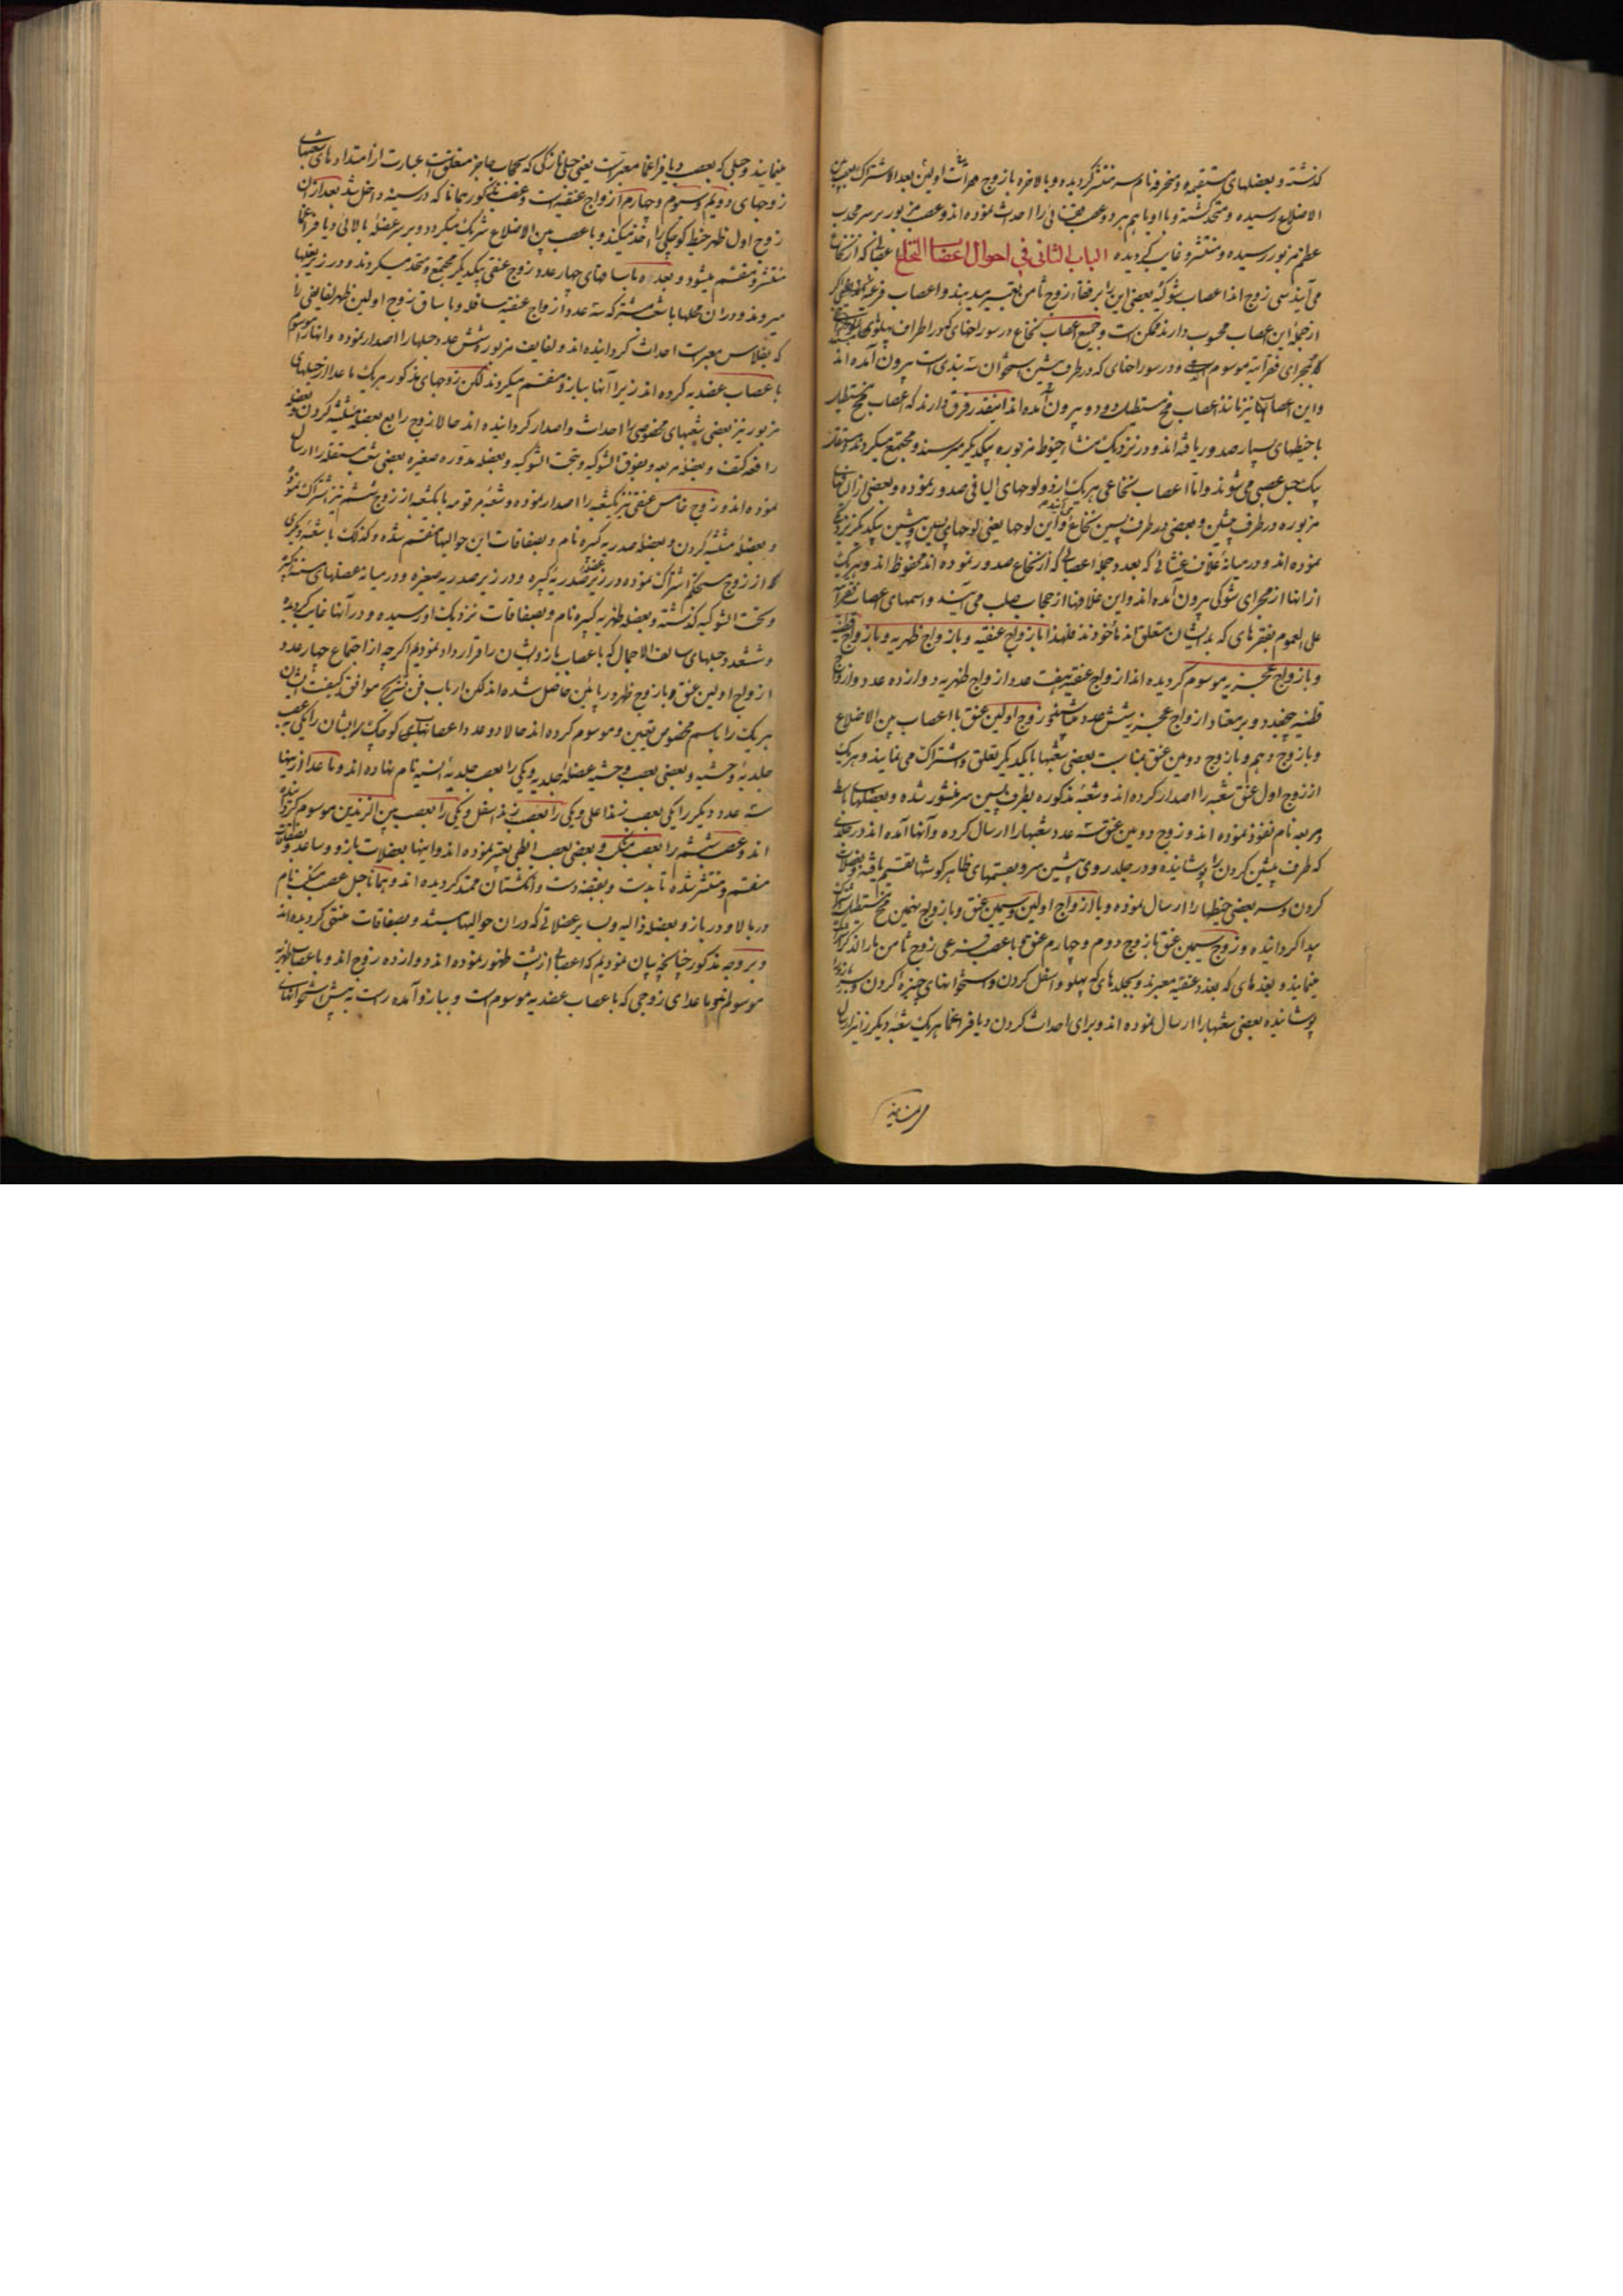 کذشته و بعضلهای مستقیمه و منحرفه نام سر منتشر کردیده و بالاخره با زوج اولین بعد الاشتراک بعصب بین
الاضلاع رسیده و متحد کشته و با او باهم هر دو عصب را احداث نموده اند و عصب مزبور بر سر محدب
عظم مزبور رسیده و منتشر و غایب کردیده الباب الثانی فی احوال اعصاب النخاع اعصابی که از نخاع
می آیند سی زوج اند اعصاب شوکیه بعضی این را برفقاء زوج ثامن تعبیر میدهند و اعصاب فرعیه
از جملهٔ این اعصاب محسوب دارند ممکن است و جمیع اعصاب نخاع در سوراخهای که در اطراف پهلوهای
که بمجرای فقراتیه موسوم است و در سوراخهای که در طرف پیشین استخوان است بیرون آمده اند
و این اعصاب نیز مانند اعصاب مخ مستطیل دو دو بیرون آمده اند اینقدر فرق دارند که اعصاب مخ مستطیل
با خیطهای بسیار صدور یافته اند و در نزدیک منشاء خیوط مزبوره بیکدیکر میرسند و مجتمع میکردند و
یک حبل عصبی می شوند و اما اعصاب نخاعی هر یک از دو لوحهای الیافی صدور نموده و بعضی از الیافهای
مزبوره در طرف پیشین و بعضی در طرف پسین نخاع و این لوحها یعنی لوحهای پسین و پیشین بیکدیکر نزدیکی
نموده اند و در میانهٔ غلاف غشائی که بعدد جملهٔ اعصابی که از نخاع صدور نموده اند محفوظ اند و هر یک
از انها از مجرای شوکی بیرون آمده اند و این غلافها از حجاب صلب می آیند و اسمهای اعصاب فقراتیه
علی العموم بفقرهای که بدیشان متعلق اند مأخوذند فلهذا بازواج عنقیه و بازواج ظهریه و بازواج قطنیه
و بازواج عجزیه موسوم کردیده اند ازواج عنقیه هفت عدد ازواج ظهریه دوازده عدد و ازواج
قطنیه پنج عدد و بر معتاد ازواج عجزیه شش عدد میباشند زوج اولین عنق با اعصاب بین الاضلاع
و با زوج دهم و با زوج دومین عنق بمناسبت بعضی شعبها بایکدیکر تعلق و اشتراک می نمایند و هر یک
از زوج اول عنق شعبه را اصدار کرده اند و شعبهٔ مذکوره بطرف پسین سر منشور شده و بعضلهای
مربعه نام نفوذ نموده اند و زوج دومین عنق سه عدد شعبها را ارسال کرده و آنها آمده اند در جلدی
که طرف پیشین کردن را پوشانیده و در جلد روی پیشین سر و بقسمهای ظاهر کوشها تقسیم یافته و بعضلات
کردن و سر بعضی خیطها را ارسال نموده و با ازواج اولین و سیمین عنق و با زوج نهمین مخ مستطیل
پیدا کردانیده و زوج سیمین عنق با زوج دوم و چهارم عنق و با عصب فرعی زوج ثامن یار
مینماید و بغدهای که بغدد عنقیه معبرند و بجلدهای که پهلو و اسفل کردن و استخوانهای چنبرهٔ کردن و سر
پوشانیده بعضی شعبها را ارسال نموده اند و برای احداث کردن دیافراغما هر یک شعبهٔ دیکر را نیز ارسال
مینمایند
مینمایند و حبلی که بعصب دیافراغما معبر است یعنی حبلی نازکی که بحجاب حاجز متعلقست عبارت از امتدادهای شعبهای
زوجهای دویم و سیوم و چهارم ازواج عنقیه است و عصب مذکور همانا که در سینه داخل شد بعد از آن
زوج اول ظهر خیط کوچکی را اخذ میکند و با عصب بین الاضلاع شریک میکردد و بر سر عضلهٔ بالائی دیافراغما
منتشر و منقسم میشود و بعده با ساقهای چهار عدد زوج عنقی بیکدیکر مجتمع و متحد میکردند و در زیر بغلها
میروند و در ان محلها با شعب مشترکه سه عدد ازواج عنقیه سافله و با ساق زوج اولین ظهر لفایفی را
که بفلاس معبر است احداث کردانیده اند و لفایف مزبوره شش عدد حبلها را اصدار نموده و انها را موسوم
باعصاب عضدیه کرده اند زیرا آنها ببازو منقسم میکردند لکن زوجهای مذکور هر یک ما عدا از حبلهای
مزبور نیز بعضی شعبهای مخصوصی را احداث و اصدار کردانیده اند حالا زوج رابع بعضلهٔ مثلثهٔ کردن و بعضلهٔ
رافعه کتف و بعضلهٔ مربعه و بفوق الشوکیه و بتحت الشوکیه و بعضلهٔ مدوره صغیره بعضی شعب مستقله را ارسال
نموده اند و زوج خامس عنقی نیز یکشعبه را اصدار نموده و شعبهٔ مرقومه با یکشعبه از زوج ششم نیز اشتراک نموده
و بعضلهٔ مثلثهٔ کردن و بعضلهٔ صدریه کبیره نام و بصفاقات این حوالیها منقسم شده و کذلک با شعبهٔ دیکری
که از زوج اشتراک نموده در زیر عضلهٔ صدریه کبیره و در زیر صدریه صغیره و در میانه عضلهای مسننه کبیر
و تحت الشوکیه کذشته و بعضلهٔ ظهریه کبیره نام و بصفاقات نزدیک او رسیده و در آنها غایب کردیده
و شش عدد حبلهای سالف الاجمال که باعصاب بازو ایشان را قرار داد نمودیم اکر چه از اجتماع چهار عدد
ازواج اولین عنق و با زوج ظهر حاصل شده اند لکن ارباب فن تشریح موافق کیفیت ایشان
هر یک را باسم مخصوص تعیین و موسوم کرده اند حالا دو عدد اعصابهای کوچک ایشان را یکی بعصب
جلدیهٔ وحشیه و بعضی بعصب وحشیه عضلهٔ جلدیه و یکی را بعصب جلدیهٔ انسیه نام نهاده اند و ما عدا از ینها
سه عدد دیکر را یکی بعصب زند اعلی و یکی را بعصب زند اسفل و یکی را بعصب بین الزندین موسوم کردانیده
اند و عصب ششم را بعصب منکب و بعضی بعصب ابطی تعبیر نموده اند و اینها بعضلات بازو و ساعد و بصفاقات
منقسم و منتشر شده تا بدست و بقبضهٔ دست و انکشتان ممتد کردیده اند و همانا حبل عصب منکب نام
در بالا و در بازو بعضلهٔ دالیه و بسایر عضلاتی که در ان حوالیها باشند و بصفاقات منتهی کردیده اند
و بر وجه مذکور چنانچه بیان نمودیم که اعصاب از پشت ظهور نموده اند دوازده زوج اند و باعصاب ظهریه
موسوم اند و ما عدای زوجی که باعصاب عضدیه موسوم است و ببازو آمده راست به پیش استخوانهای